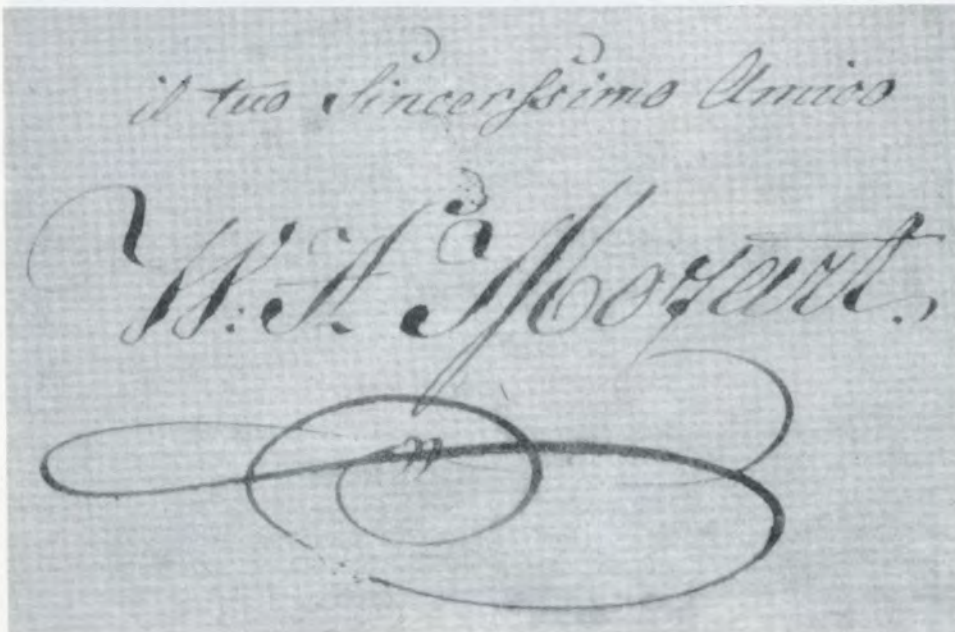 il tuo Sincerissimo Amico
W. A. Mozart.